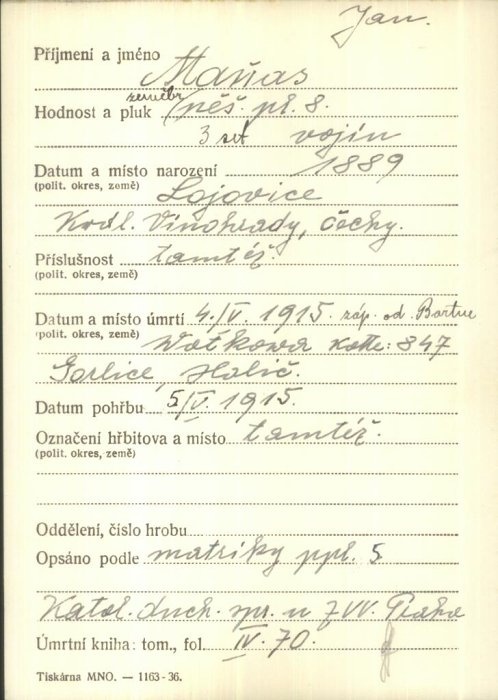 Jan.
Příjmení a jméno Maňas
Hodnost a pluk zeměbr. pěš. pl. 8.
3 set vojín
Datum a místo narození 1889
(polit. okres, země) Lojovice
Král. Vinohrady, Čechy.
Příslušnost tamtéž.
(polit. okres, země)
Datum a místo úmrtí 4./V. 1915. záp. od Bartne
(polit. okres, země) Wotkowa kotte: 847
Gorlice, Halič.
Datum pohřbu 5./V. 1915.
Označení hřbitova a místo tamtéž.
(polit. okres, země)
Oddělení, číslo hrobu
Opsáno podle matriky ppl. 5.
Katol. duch. spr. u ZVV. Praha
Úmrtní kniha: tom., fol. IV. 70.
Tiskárna MNO. — 1163-36.